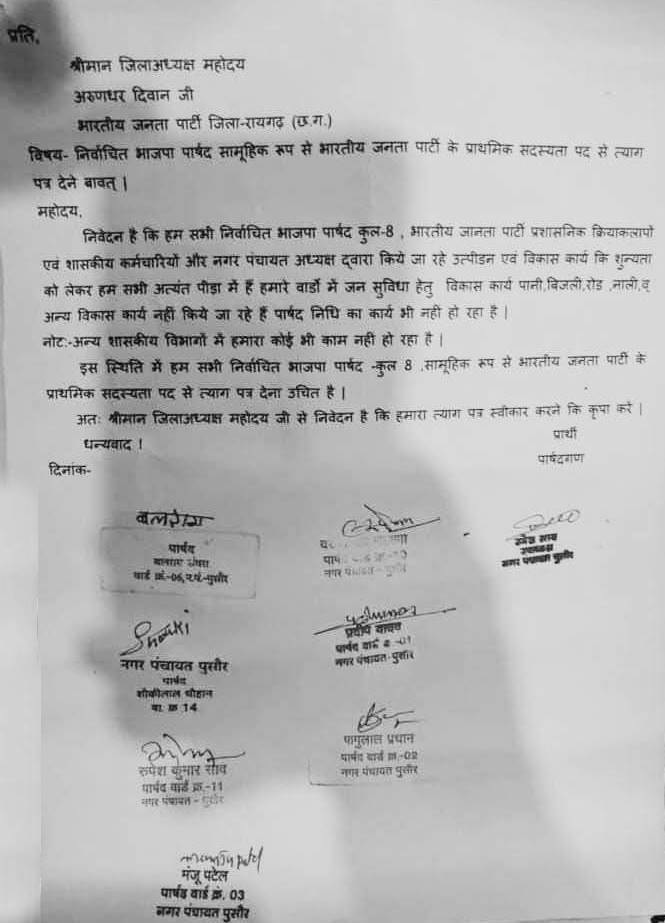 प्रति,
श्रीमान जिलाअध्यक्ष महोदय
अरुणधर दिवान जी
भारतीय जनता पार्टी जिला-रायगढ़ (छ.ग.)
विषय- निर्वाचित भाजपा पार्षद सामूहिक रूप से भारतीय जनता पार्टी के प्राथमिक सदस्यता पद से त्याग
पत्र देने बावत् |
महोदय,
निवेदन है कि हम सभी निर्वाचित भाजपा पार्षद कुल-8 , भारतीय जानता पार्टी प्रशासनिक क्रियाकलापो
एवं शासकीय कर्मचारियों और नगर पंचायत अध्यक्ष द्वारा किये जा रहे उत्पीडन एवं विकास कार्य कि शुन्यता
को लेकर हम सभी अत्यंत पीड़ा में हैं हमारे वार्डो में जन सुविधा हेतु विकास कार्य पानी,बिजली,रोड ,नाली,व्
अन्य विकास कार्य नहीं किये जा रहे हैं पार्षद निधि का कार्य भी नहीं हो रहा है |
नोट:-अन्य शासकीय विभागों में हमारा कोई भी काम नहीं हो रहा है |
इस स्थिति में हम सभी निर्वाचित भाजपा पार्षद -कुल 8 ,सामूहिक रूप से भारतीय जनता पार्टी के
प्राथमिक सदस्यता पद से त्याग पत्र देना उचित है |
अतः श्रीमान जिलाअध्यक्ष महोदय जी से निवेदन है कि हमारा त्याग पत्र स्वीकार करने कि कृपा करें |
धन्यवाद !
प्रार्थी
पार्षदगण
दिनांक-
पार्षद
वार्ड क्रं.-06, न.पं.-पुसौर
नगर पंचायत - पुसौर
रामेश साव
उपाध्यक्ष
नगर पंचायत पुसौर
नगर पंचायत पुसौर
पार्षद
शौकीलाल चौहान
वा. क्र 14
प्रदीप यादव
पार्षद वार्ड क्र -01
नगर पंचायत-पुसौर
रुपेश कुमार साव
पार्षद वार्ड क्र.-11
नगर पंचायत - पुसौर
पागुलाल प्रधान
पार्षद वार्ड क्र.-02
नगर पंचायत पुसौर
मंजू पटेल
पार्षद वार्ड क्रं. 03
नगर पंचायत पुसौर